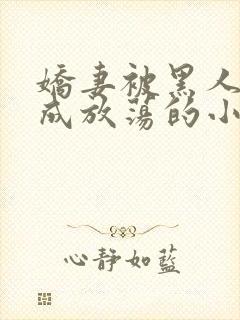 嬌妻被黑人
成放蕩的小
心靜如藍